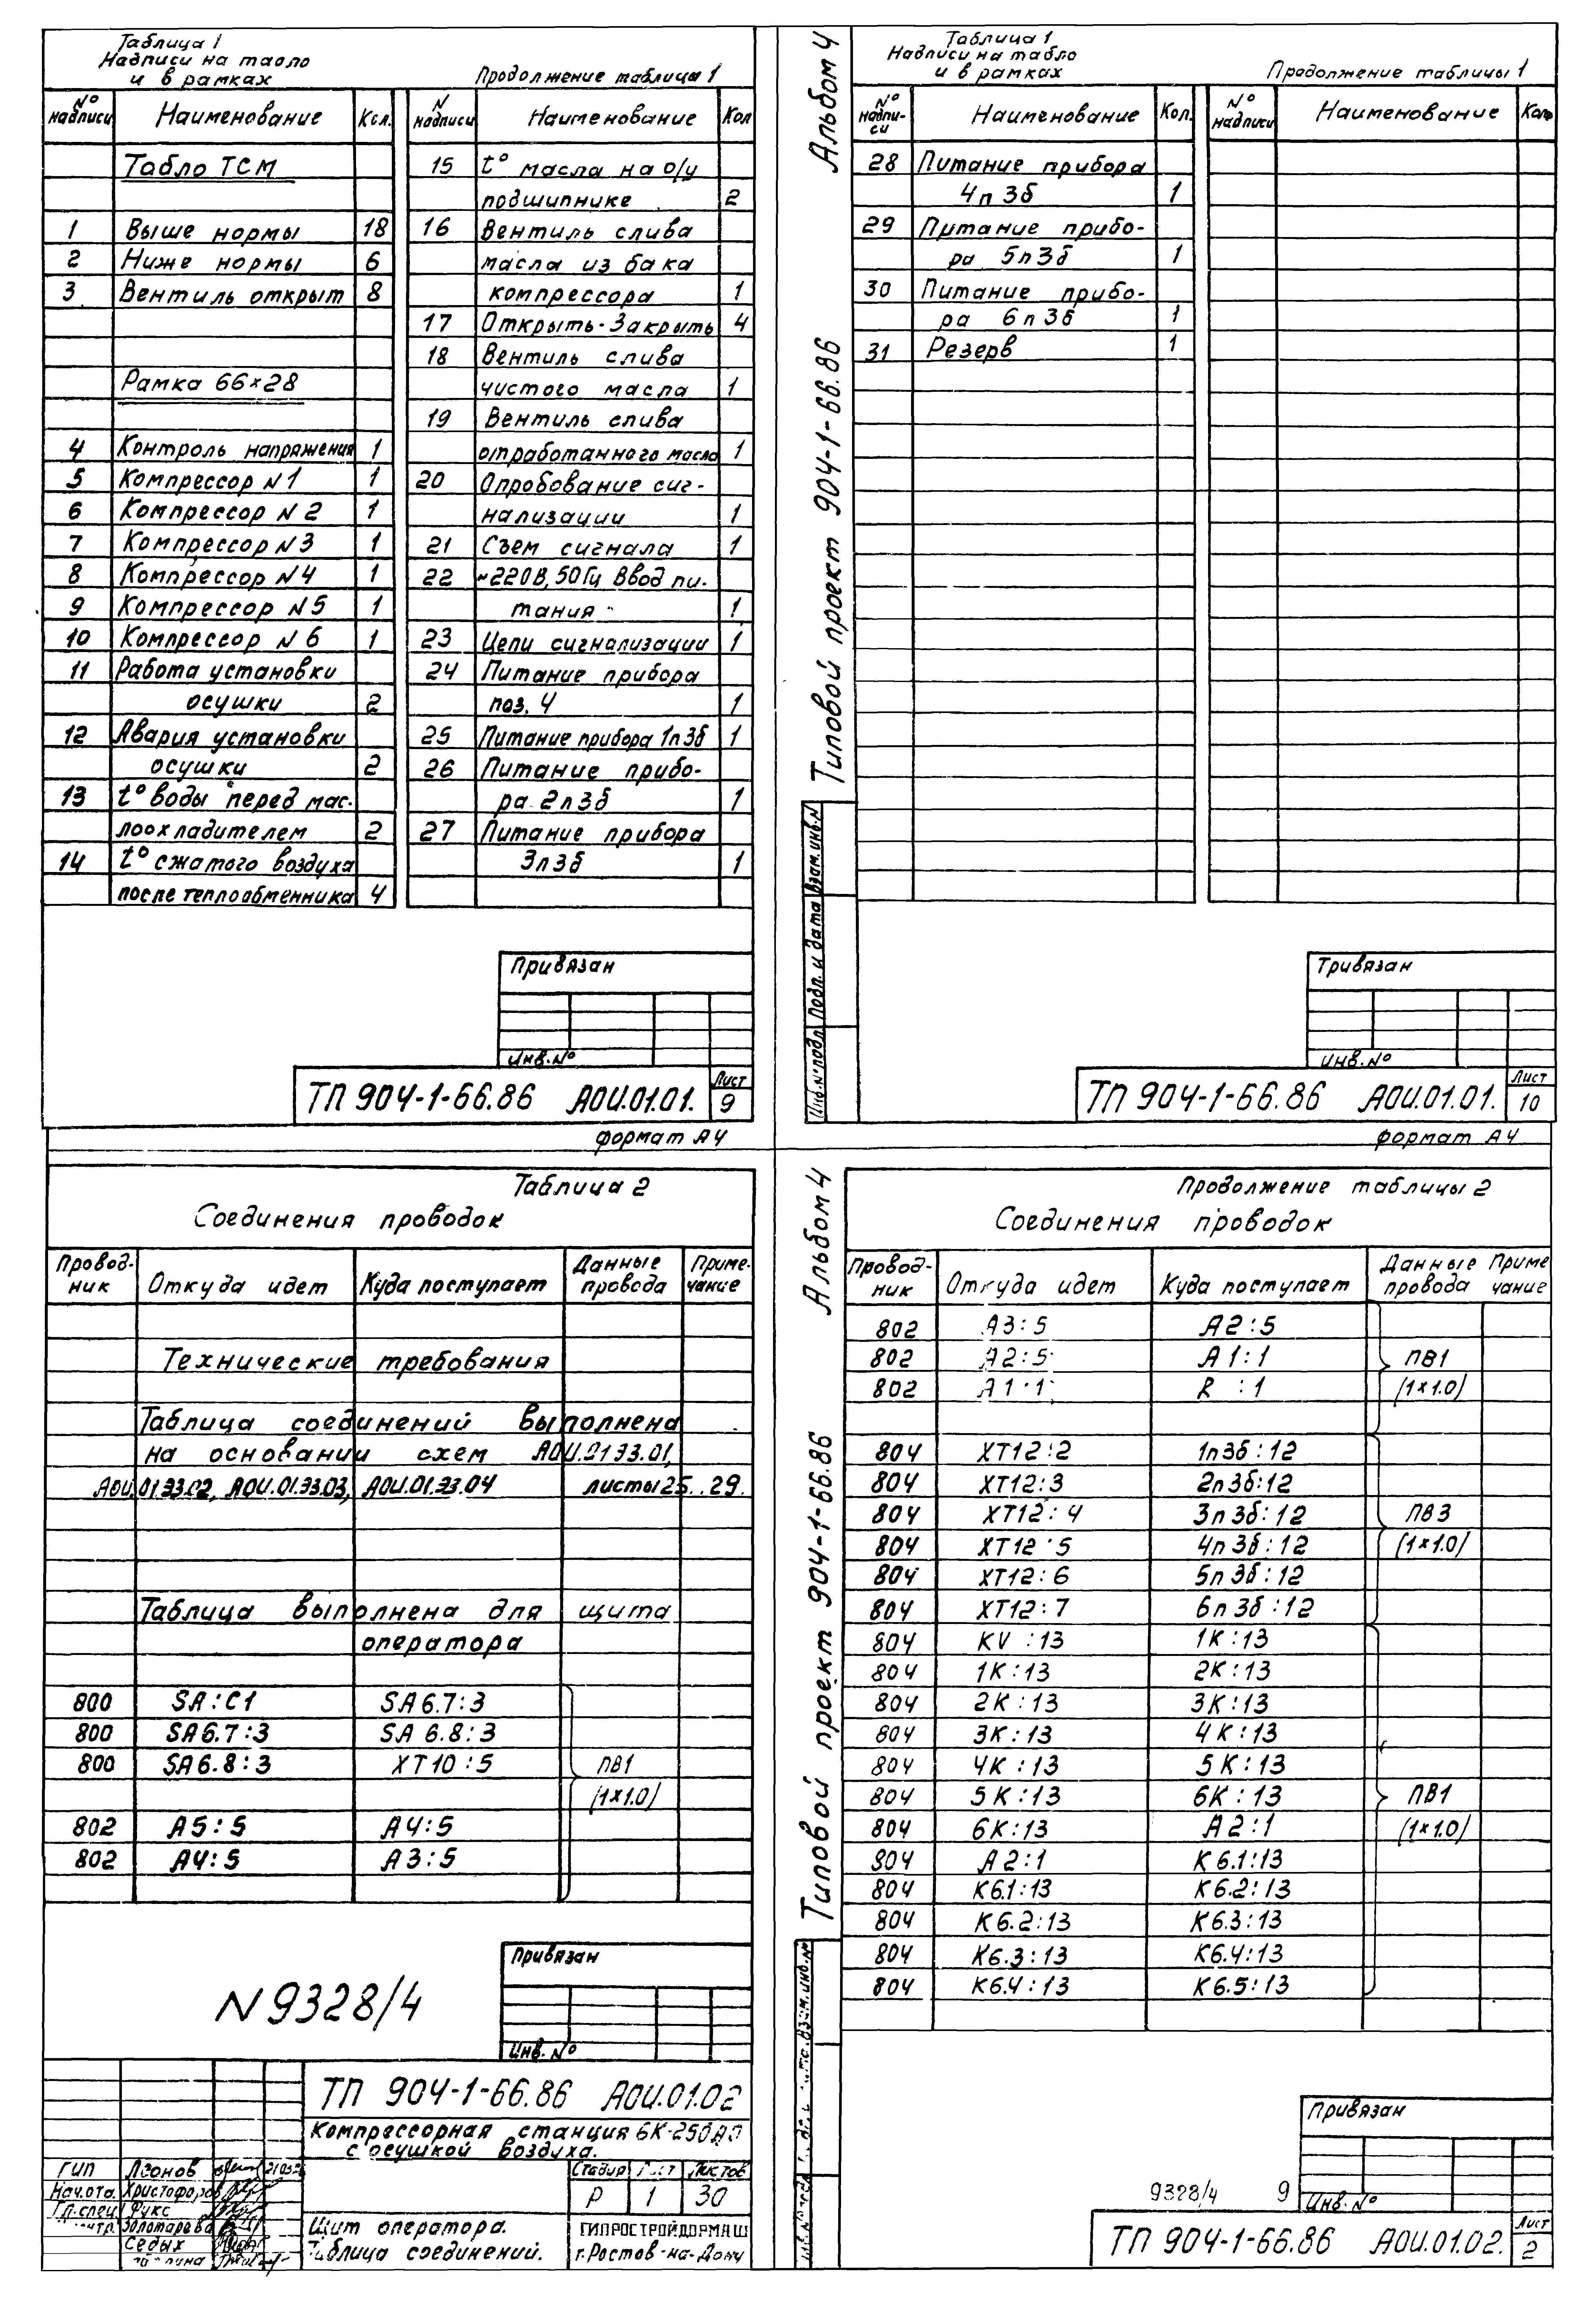 Таблица 1
Надписи на табло
и в рамках
Продолжение таблицы 1
№ надписи Наименование Кол.
Табло ТСМ
1 Выше нормы 18
2 Ниже нормы 6
3 Вентиль открыт 8
Рамка 66×28
4 Контроль напряжения 1
5 Компрессор N1 1
6 Компрессор N2 1
7 Компрессор N3 1
8 Компрессор N4 1
9 Компрессор N5 1
10 Компрессор N6 1
11 Работа установки
осушки 2
12 Авария установки
осушки 2
13 t° воды перед мас-
лоохладителем 2
14 t° сжатого воздуха
после теплообменника 4
N надписи Наименование Кол
15 t° масла на о/у
подшипнике 2
16 Вентиль слива
масла из бака
компрессора 1
17 Открыть-Закрыть 4
18 Вентиль слива
чистого масла 1
19 Вентиль слива
отработанного масла 1
20 Опробование сиг-
нализации 1
21 Съем сигнала 1
22 ~220В, 50Гц Ввод пи-
тания 1
23 Цепи сигнализации 1
24 Питание прибора
поз. 4 1
25 Питание прибора 1п3б 1
26 Питание прибо-
ра 2п3б 1
27 Питание прибора
3п3б 1
Привязан
Инв.№
ТП 904-1-66.86 АОИ.01.01.
Лист
9
формат А4
Альбом 4
Типовой проект 904-1-66.86
Взам.инв.N
Подп. и дата
Инв.№подл.
Таблица 1
Надписи на табло
и в рамках
Продолжение таблицы 1
№ надпи-си Наименование Кол.
№ надписи Наименование Кол
28 Питание прибора
4п3б 1
29 Питание прибо-
ра 5п3б 1
30 Питание прибо-
ра 6п3б 1
31 Резерв 1
Привязан
Инв.№
ТП 904-1-66.86 АОИ.01.01.
Лист
10
формат А4
Таблица 2
Соединения проводок
Провод-ник Откуда идет Куда поступает Данные провода Приме-чание
Технические требования
Таблица соединений выполнена
на основании схем АОИ.01ЭЗ.01,
АОИ.01.ЭЗ.02, АОИ.01.ЭЗ.03, АОИ.01.ЭЗ.04 листы 25..29.
Таблица выполнена для щита
оператора
800 SA:C1 SA6.7:3
800 SA6.7:3 SA 6.8:3
800 SA6.8:3 XT10:5 ПВ1
(1×1.0)
802 A5:5 A4:5
802 A4:5 A3:5
N9328/4
Привязан
Инв.№
ТП 904-1-66.86 АОИ.01.02
Компрессорная станция 6К-250АО
с осушкой воздуха.
ГИП Леонов
Нач.отд. Христофоров
Гл.спец Фукс
Золотарева
Седых
Стадия Лист Листов
Р 1 30
Щит оператора.
Таблица соединений.
ГИПРОСТРОЙДОРМАШ
г.Ростов-на-Дону
Альбом 4
Типовой проект 904-1-66.86
Взам.инв.№
Продолжение таблицы 2
Соединения проводок
Провод-ник Откуда идет Куда поступает Данные провода Приме чание
802 A3:5 A2:5
802 A2:5 A1:1 ПВ1
802 A1:1 R :1 (1×1.0)
804 XT12:2 1п3б:12
804 XT12:3 2п3б:12
804 XT12:4 3п3б:12 ПВ3
804 XT12:5 4п3б:12 (1×1.0)
804 XT12:6 5п3б:12
804 XT12:7 6п3б:12
804 KV :13 1K:13
804 1K:13 2K:13
804 2K:13 3K:13
804 3K:13 4K:13
804 4K:13 5K:13
804 5K:13 6K:13 ПВ1
804 6K:13 A2:1 (1×1.0)
804 A2:1 K6.1:13
804 K6.1:13 K6.2:13
804 K6.2:13 K6.3:13
804 K6.3:13 K6.4:13
804 K6.4:13 K6.5:13
Привязан
Инв.№
9328/4 9
ТП 904-1-66.86 АОИ.01.02.
Лист
2